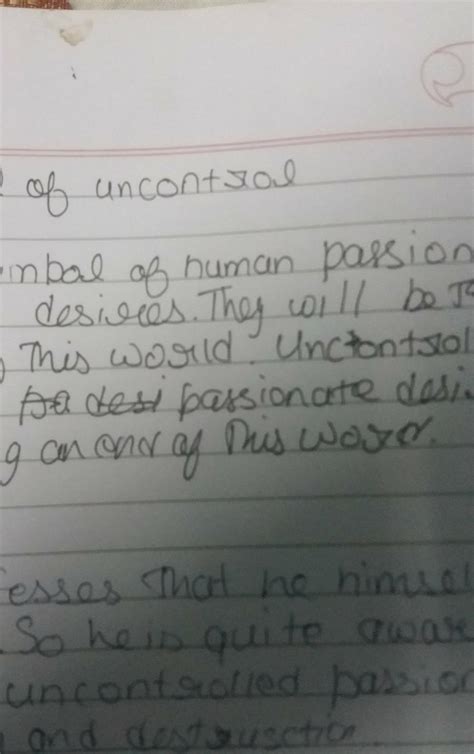 of uncontrol
mbol of human passion
desires. They will be
This world. Uncontrol
passionate desi
g an end of this world.
esses that he himsel
So he is quite aware
uncontrolled passion
and destruction